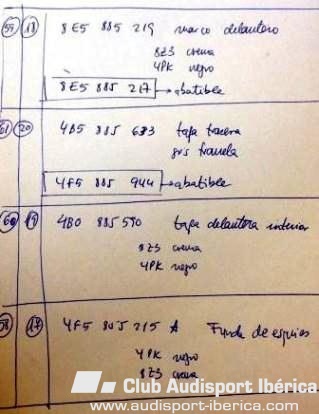 59 18 8E5 885 219 marco delantero
8Z3 crema
4PK negro
8E5 885 217 → abatible
61 20 4B5 885 633 tapa trasera
gris franela
4F5 885 944 → abatible
60 19 4B0 885 590 tapa delantera interior
8Z3 crema
4PK negro
58 17 4F5 885 215 A Funda de esquies
4PK negro
8Z3 crema
Club Audisport Ibérica
www.audisport-iberica.com